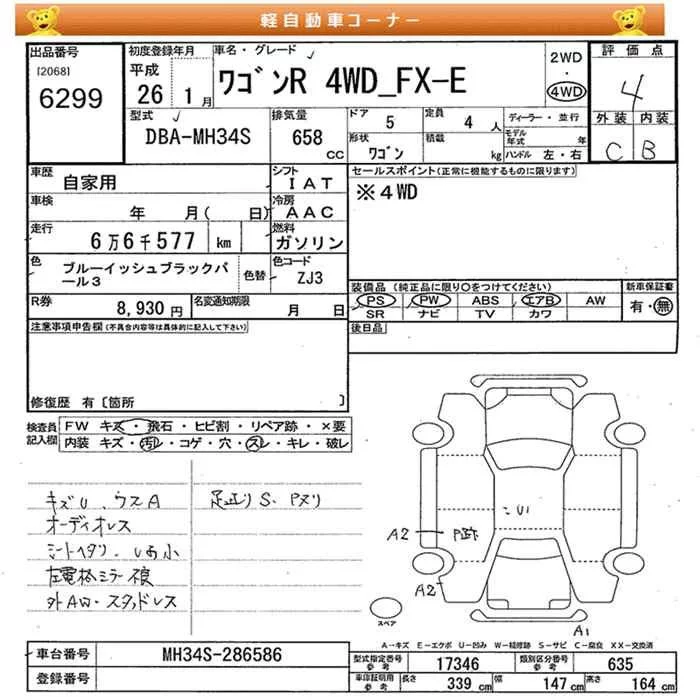 軽自動車コーナー
出品番号
[2068]
6299
初度登録年月
平成
26 1月
車名・グレード
ワゴンR 4WD_FX-E
2WD
・
4WD
評価点
4
外装 内装
C B
型式
DBA-MH34S
排気量
658
CC
ドア
5
定員
4 人
形状
ワゴン
積載
kg
ディーラー・並行
モデル年式 年
ハンドル 左・右
車歴
自家用
シフト
IAT
車検
年 月( 日)
冷房
AAC
走行
6万6千577 km
燃料
ガソリン
色
ブルーイッシュブラックパール3
色替
色コード
ZJ3
R券
8,930円
名変通知期限
月 日
セールスポイント(正常に機能するものに限ります)
※4WD
装備品(純正品に限り○をつけてください)
PS PW ABS エアB AW
SR ナビ TV カワ
新車保証書
有・無
後日品
注意事項申告欄(不具合内容等は具体的に記入して下さい)
修復歴 有〔箇所 〕
検査員記入欄
FW キズ・飛石・ヒビ割・リペア跡・×要
内装 キズ・汚レ・コゲ・穴・スレ・キレ・破レ
キズU、ウスA
オーディオレス
シートヘタリ・
左電格ミラー
外AW・スタッドレス
S・
U1
A2
P跡
A2
A1
スペア
A-キズ E-エクボ U-凹み W-補修跡 S-サビ C-腐食 XX-交換済
車台番号
MH34S-286586
登録番号
型式指定番号
参考
17346
類別区分番号
参考
635
車庫証明用
参考
長さ 339 cm
幅 147 cm
高さ 164 cm